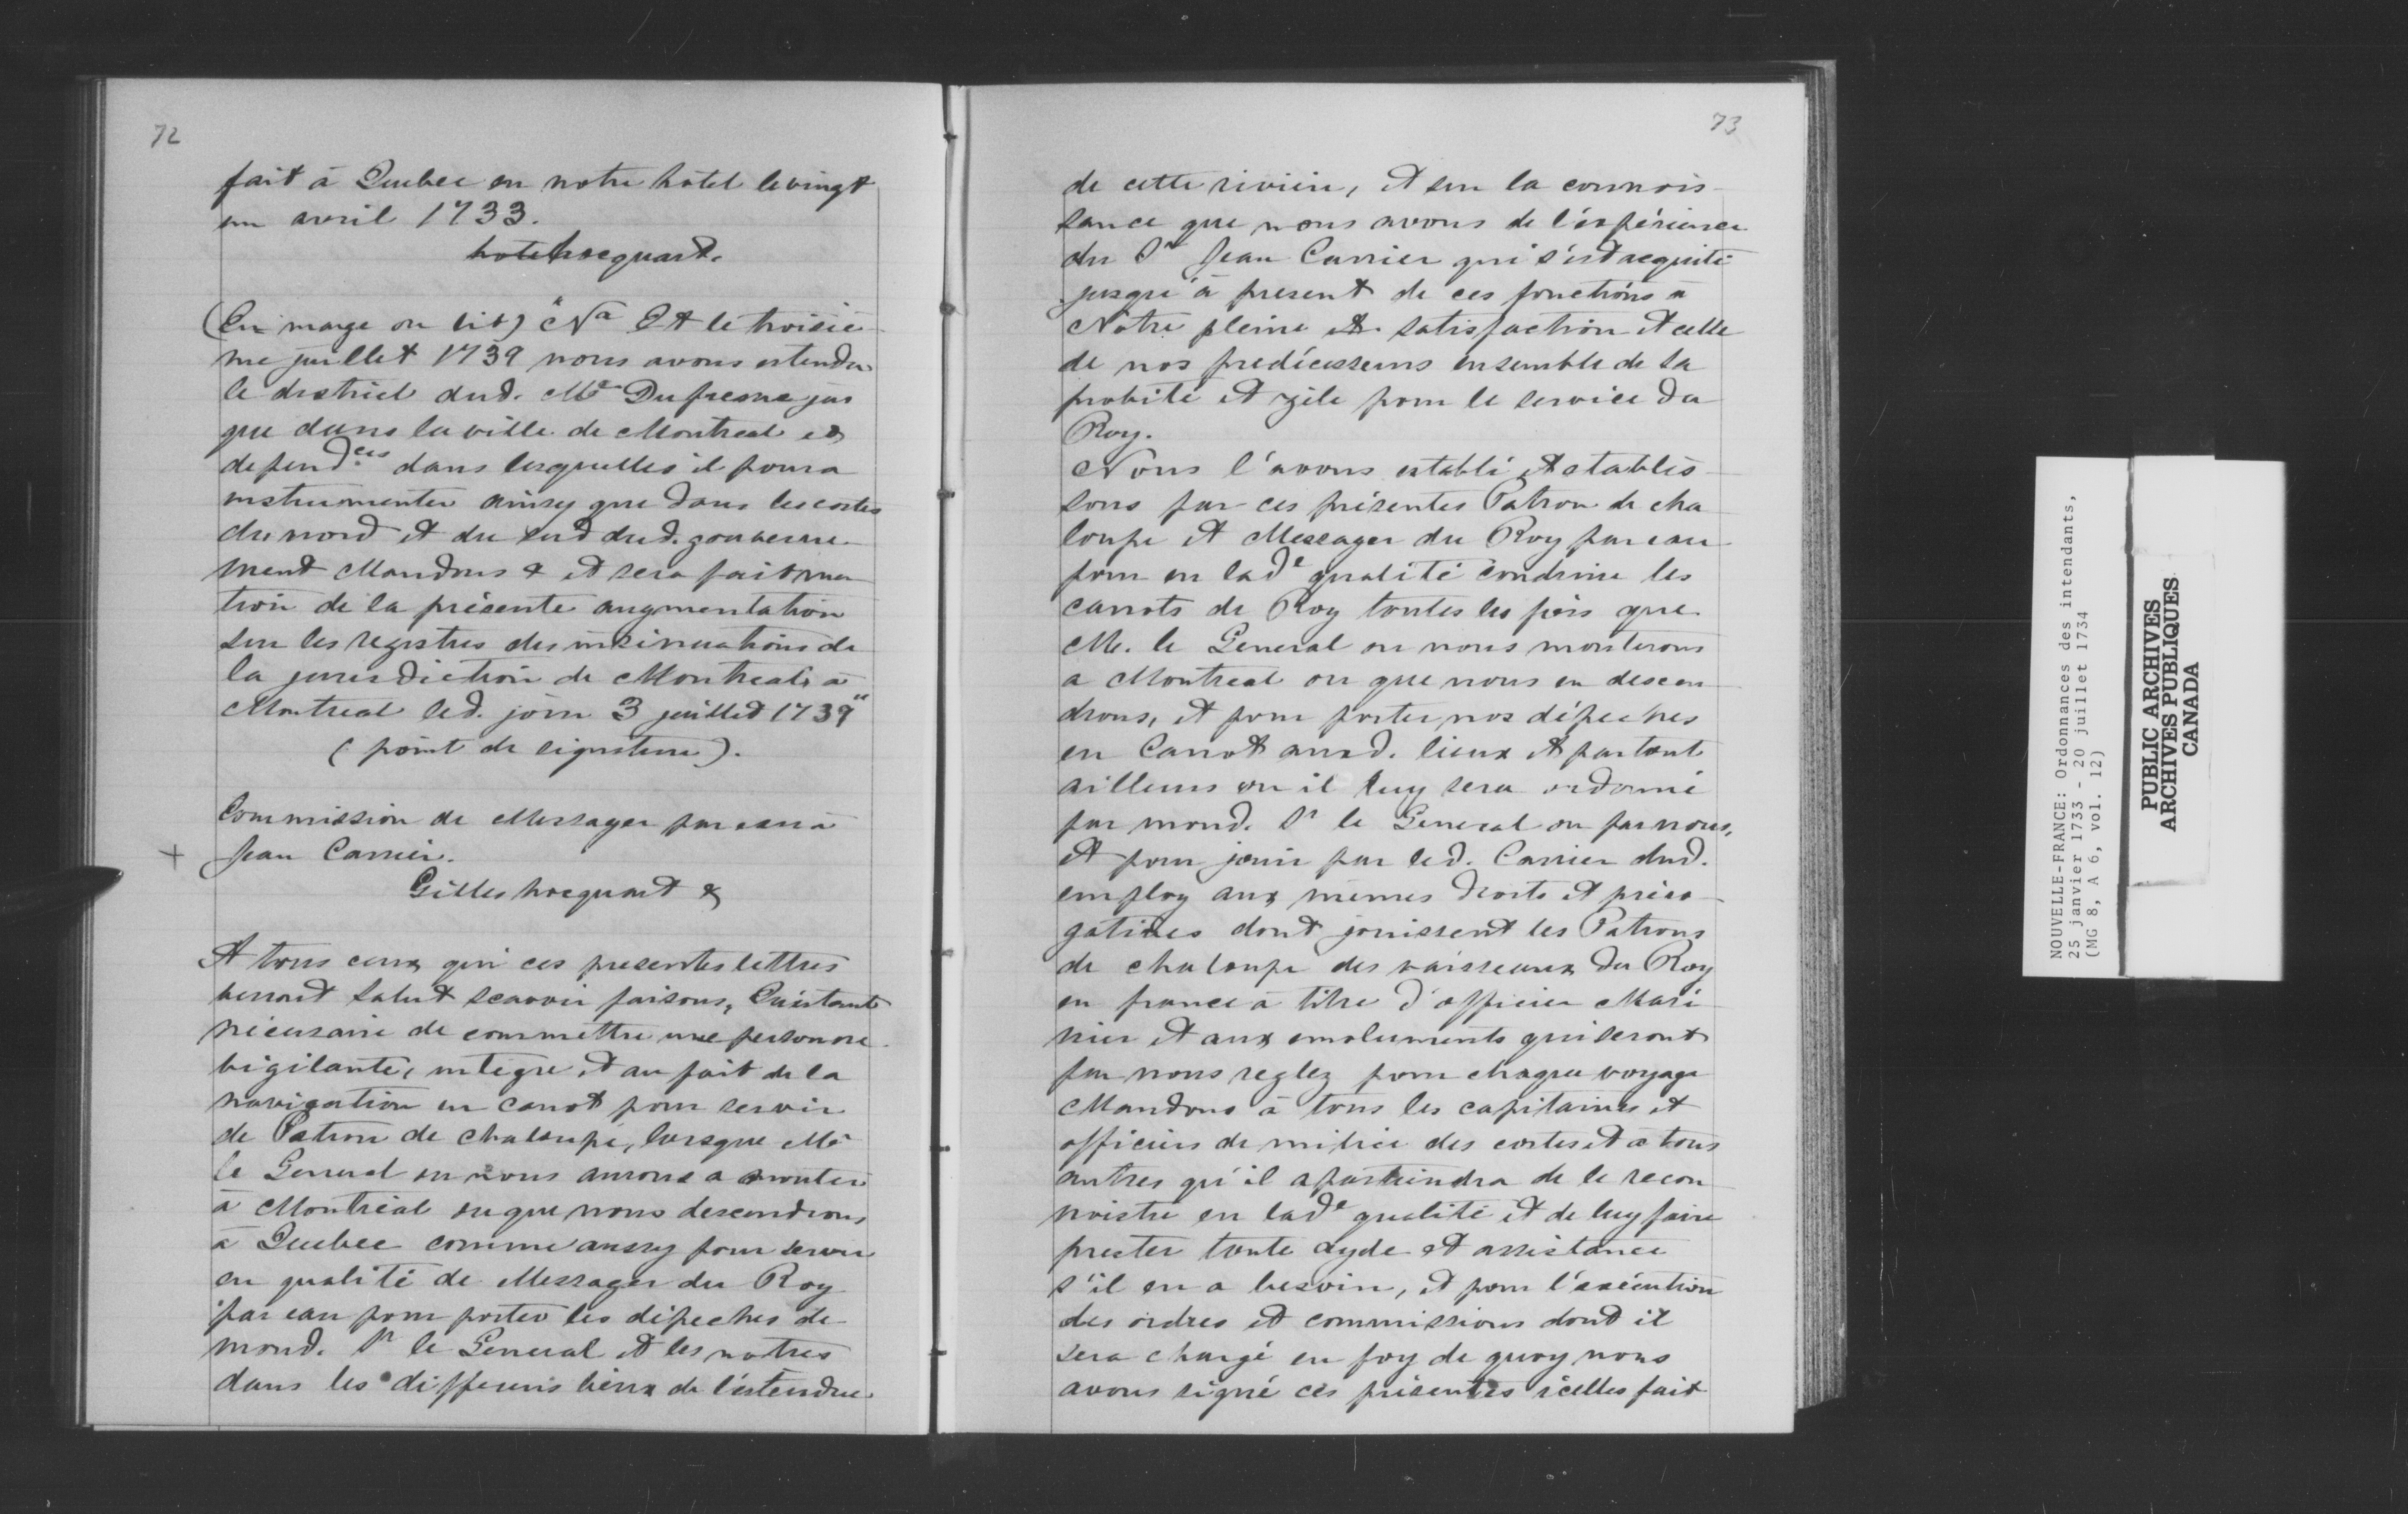 72
fait à Quebec en notre hôtel le vingt
un avril 1733.
hotel hocquart.
(En marge on lit) "Na Et le troisiè
me juillet 1739 nous avons estendu
le district dud. Me Dufresne jus
que dans la ville de Montreal et
dependces dans lesquelles il poura
instrumenter ainsy que dans les costes
du nord et du sud dud. gouverne
ment Mandons & et sera fait men
tion de la présente augmentation
sur les registres des insinuations de
la jurisdiction de Montreal, à
Montreal led. jour 3 juillet 1739"
(point de signature).
Commission de Messager par eau à
+ Jean Carrier.
Gilles hocquart &
A tous ceux qui ces presentes lettres
verront Salut scavoir faisons, Qu'estant
nécessaire de commettre une personne
vigilante, intègre et au fait de la
navigation en canot pour servir
de Patron de chaloupe, lorsque Mr
le General ou nous aurons a monter
à Montréal ou que nous descendrons
à Quebec comme aussy pour servir
en qualité de Messager du Roy
par eau pour porter les dépeches de
mond. Sr le General et les notres
dans les differens lieux de l'estendue
73
de cette rivière, et sur la connois
sance que nous avons de l'éxpérience
du Sr Jean Carrier qui s'est acquité
jusqu'à present de ces fonctions à
Nôtre pleine et satisfaction et celle
de nos predécesseurs ensemble de sa
probité et zèle pour le service du
Roy.
Nous l'avons establi et establis
sons par ces présentes Patron de cha
loupe et Messager du Roy par eau
pour en lade qualité conduire les
canots du Roy toutes les fois que
M. le General ou nous monterons
a Montreal ou que nous en descen
drons, et pour porter nos dépeches
en Canot auxd. lieux et partout
ailleurs ou il luy sera ordonné
par mond. Sr le General ou par nous,
et pour jouir par led. Carrier dud.
employ aux mêmes droits et préro
gatives dont jouissent les Patrons
de chaloupe des vaisseaux du Roy
en france à titre d'officier Mari
nier et aux emoluments qui seront
par nous reglez pour chaque voyage
Mandons à tous les capitaines et
officiers de milice des costes et à tous
autres qu'il apartiendra de le recon
noistre en lade qualité et de luy faire
prester toute ayde et assistance
s'il en a besoin, et pour l'exécution
des ordres et commissions dont il
sera chargé en foy de quoy nous
avons signé ces présentes icelles fait
NOUVELLE-FRANCE: Ordonnances des intendants,
25 janvier 1733 - 20 juillet 1734
(MG 8, A 6, vol. 12)
PUBLIC ARCHIVES
ARCHIVES PUBLIQUES
CANADA